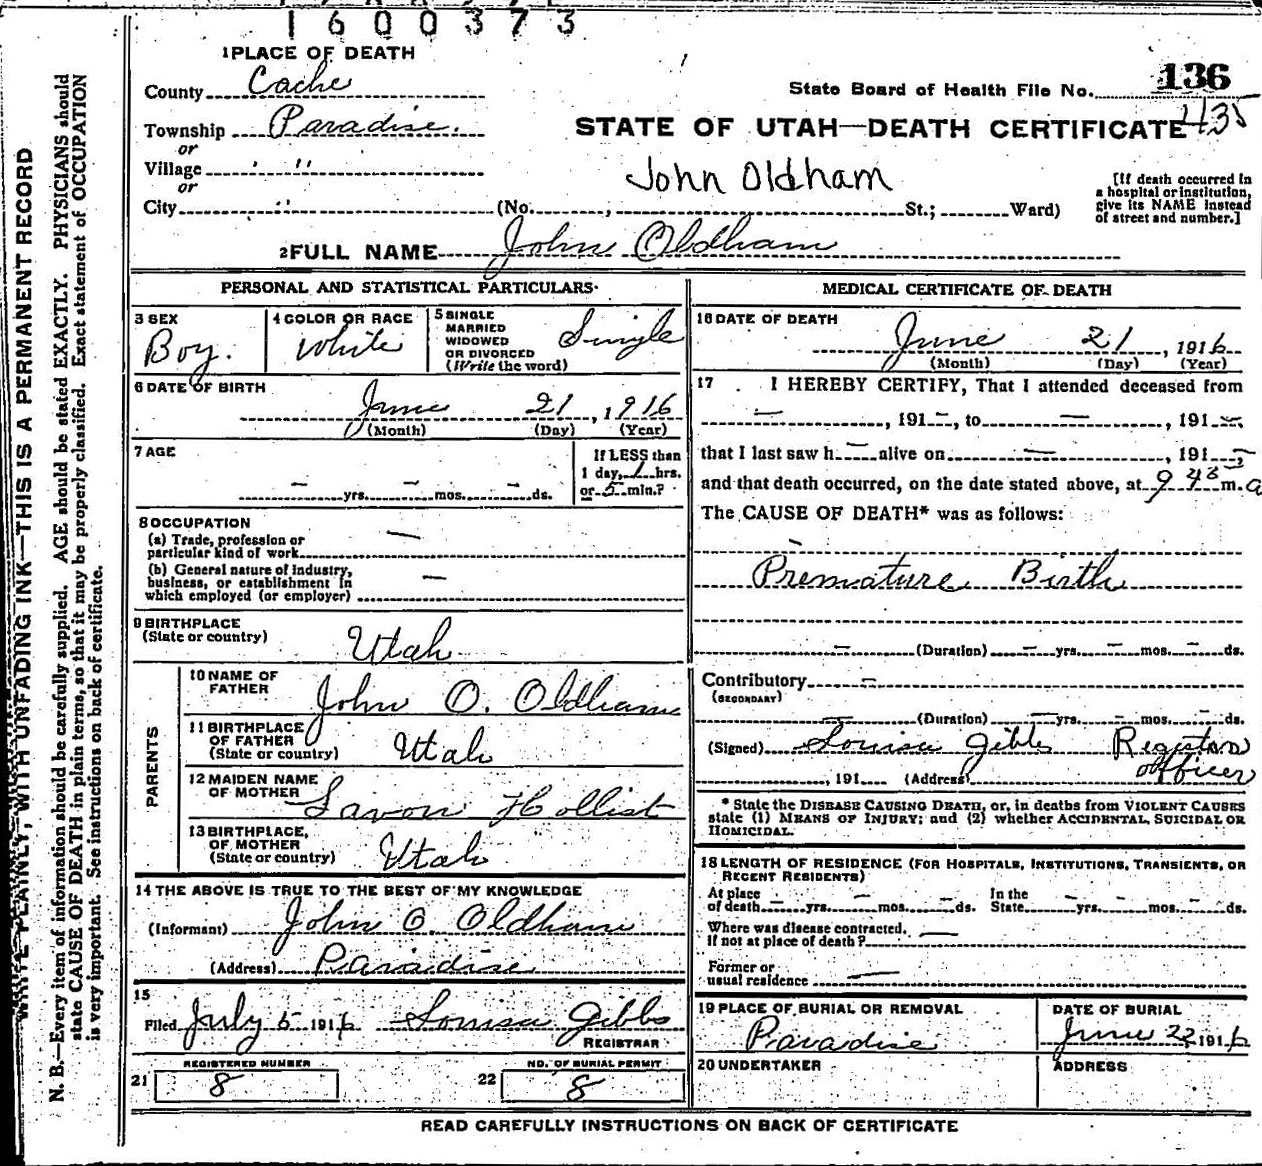 1600373
1 PLACE OF DEATH
County Cache
State Board of Health File No. 136
Township Paradise.
or
STATE OF UTAH—DEATH CERTIFICATE 1135
Village " "
or
John Oldham
City " (No. , St.; Ward)
[If death occurred in
a hospital or institution,
give its NAME instead
of street and number.]
2 FULL NAME John Oldham
PERSONAL AND STATISTICAL PARTICULARS
3 SEX
Boy.
4 COLOR OR RACE
White
5 SINGLE
MARRIED
WIDOWED
OR DIVORCED
(Write the word)
Single
6 DATE OF BIRTH
June 21, 1916
(Month) (Day) (Year)
7 AGE
— yrs. — mos. — ds.
If LESS than
1 day, 1 hrs.
or 5 min.?
8 OCCUPATION
(a) Trade, profession or
particular kind of work —
(b) General nature of industry,
business, or establishment in
which employed (or employer) —
9 BIRTHPLACE
(State or country) Utah
PARENTS
10 NAME OF
FATHER John O. Oldham
11 BIRTHPLACE
OF FATHER
(State or country) Utah
12 MAIDEN NAME
OF MOTHER Lavon Hollist
13 BIRTHPLACE,
OF MOTHER
(State or country) Utah
14 THE ABOVE IS TRUE TO THE BEST OF MY KNOWLEDGE
(Informant) John O. Oldham
(Address) Paradise
15
Filed July 5 1916 Louisa Gibbs
REGISTRAR
REGISTERED NUMBER
21 8
NO. OF BURIAL PERMIT
22 8
MEDICAL CERTIFICATE OF DEATH
16 DATE OF DEATH
June 21, 1916
(Month) (Day) (Year)
17 I HEREBY CERTIFY, That I attended deceased from
—, 191—, to —, 191—
that I last saw h— alive on —, 191—,
and that death occurred, on the date stated above, at 9 45 m. a
The CAUSE OF DEATH* was as follows:
Premature Birth
— (Duration) — yrs. — mos. — ds.
Contributory —
(SECONDARY)
— (Duration) — yrs. — mos. — ds.
(Signed) Louisa Gibbs Registrar
officer
, 191 (Address)
* State the DISEASE CAUSING DEATH, or, in deaths from VIOLENT CAUSES
state (1) MEANS OF INJURY; and (2) whether ACCIDENTAL, SUICIDAL OR
HOMICIDAL.
18 LENGTH OF RESIDENCE (FOR HOSPITALS, INSTITUTIONS, TRANSIENTS, OR
RECENT RESIDENTS)
At place
of death — yrs. — mos. — ds.
In the
State — yrs. — mos. — ds.
Where was disease contracted,
if not at place of death? —
Former or
usual residence —
19 PLACE OF BURIAL OR REMOVAL
Paradise
DATE OF BURIAL
June 22 1916
20 UNDERTAKER
ADDRESS
READ CAREFULLY INSTRUCTIONS ON BACK OF CERTIFICATE
WRITE PLAINLY, WITH UNFADING INK—THIS IS A PERMANENT RECORD
N. B.—Every item of information should be carefully supplied. AGE should be stated EXACTLY. PHYSICIANS should
state CAUSE OF DEATH in plain terms, so that it may be properly classified. Exact statement of OCCUPATION
is very important. See instructions on back of certificate.